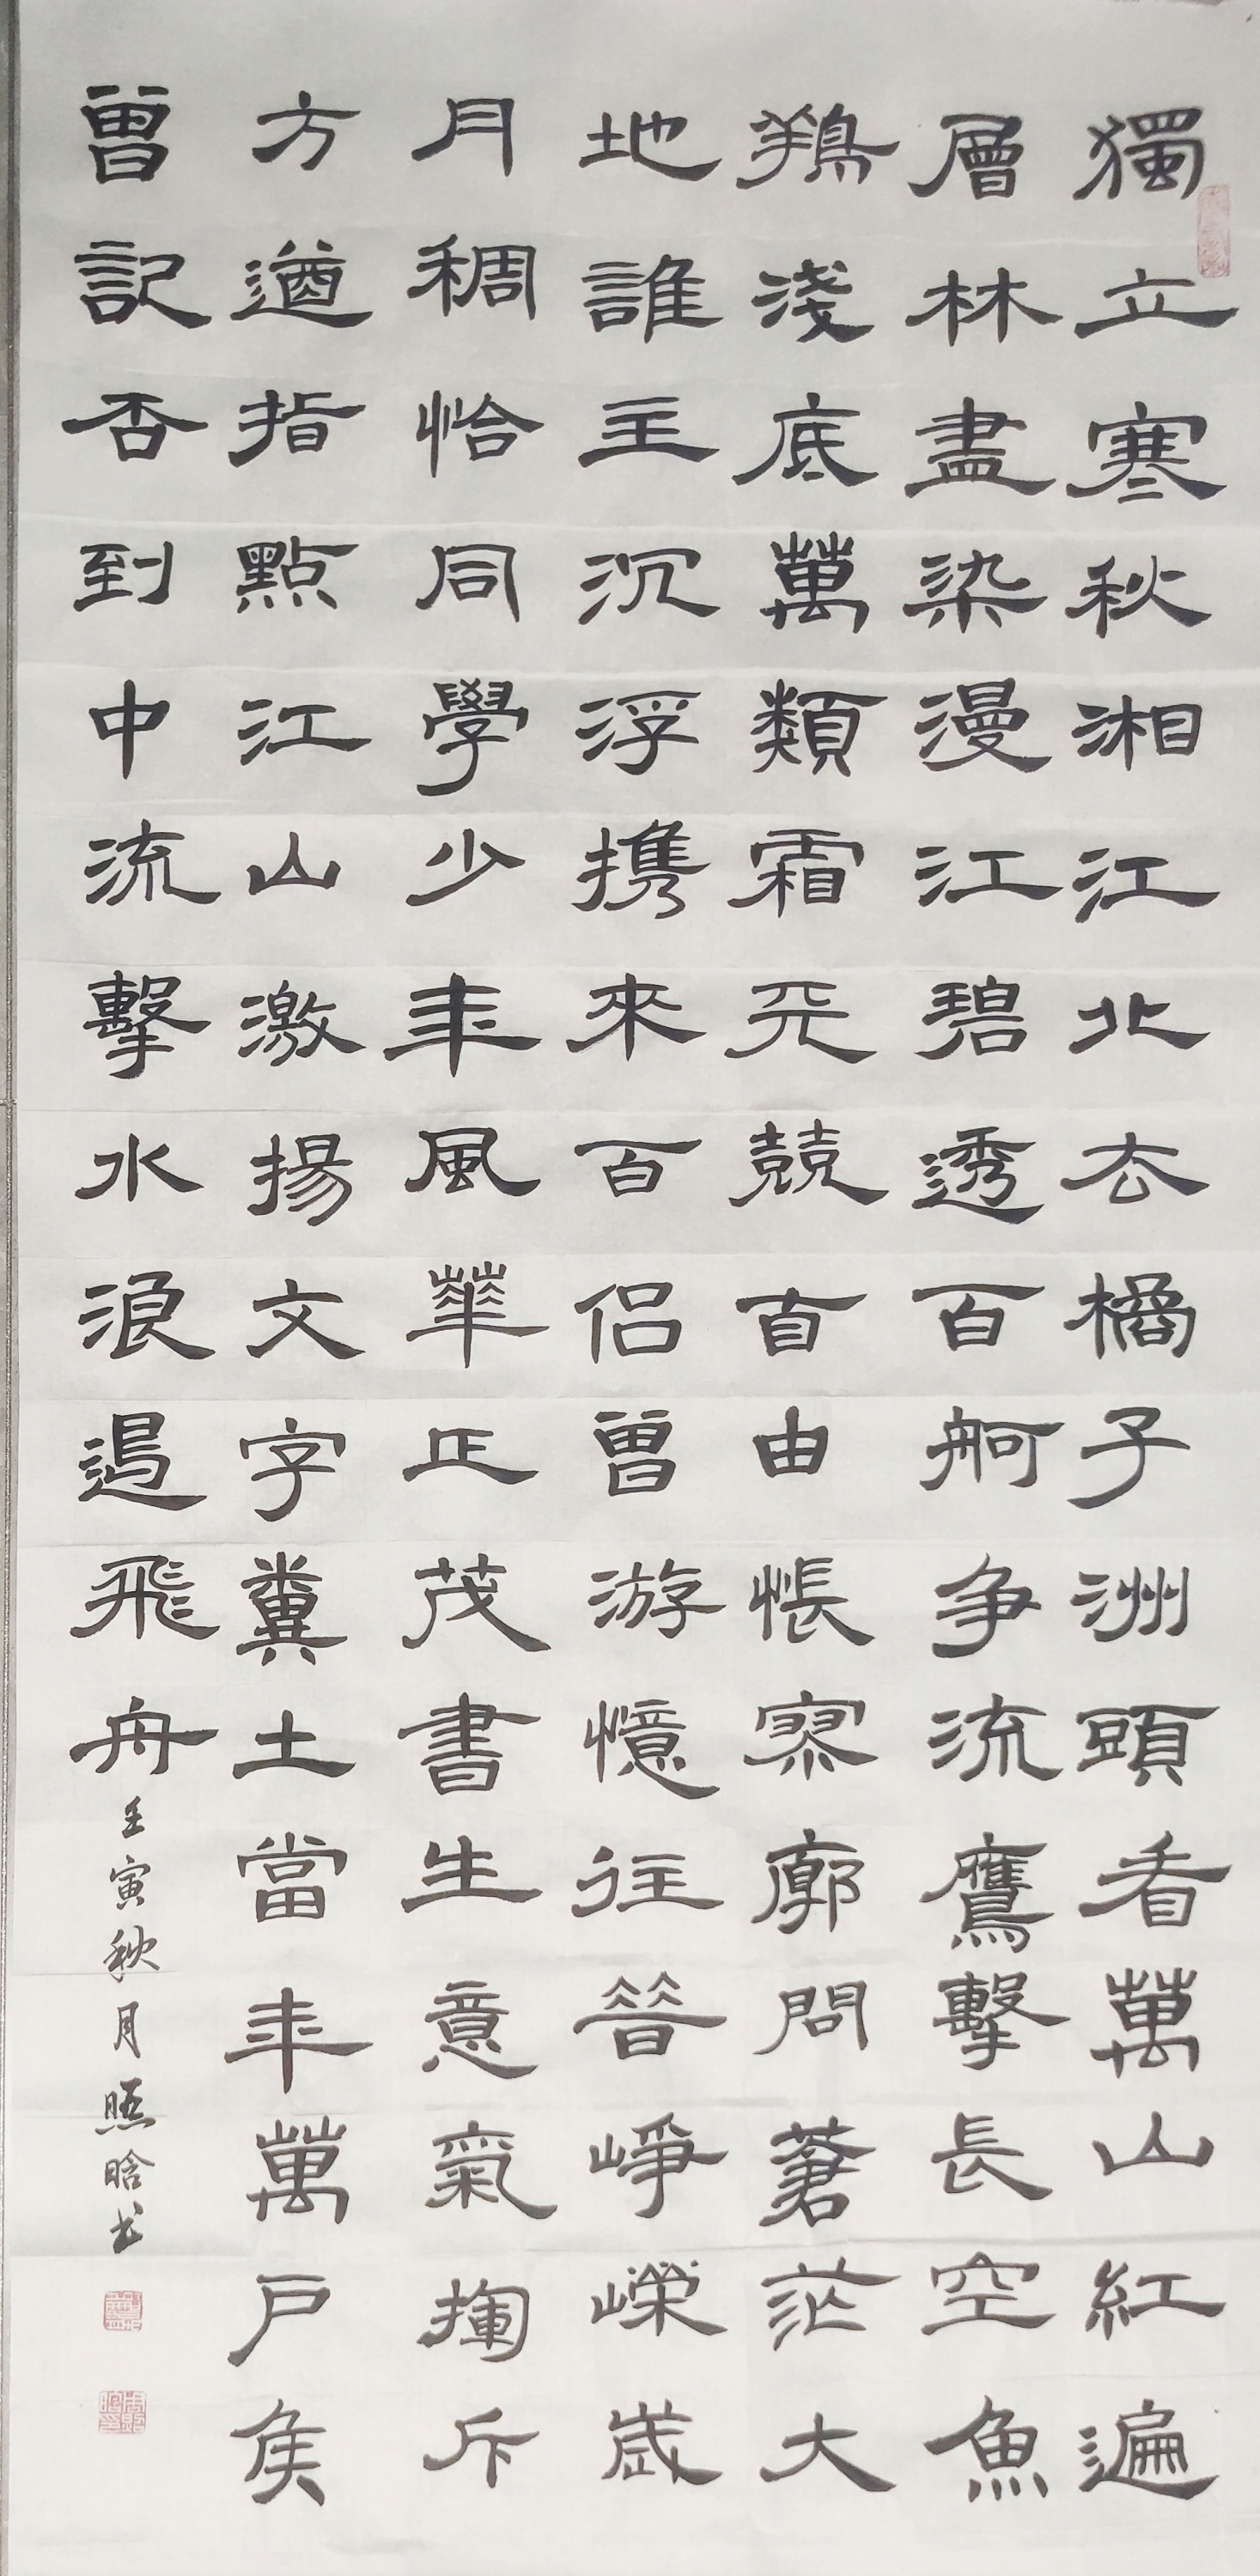 獨立寒秋湘江北去橘子洲頭看萬山紅遍
層林盡染漫江碧透百舸争流鷹擊長空魚
鴹淺底萬類霜天競自由悵寥廓問蒼茫大
地誰主沉浮携來百侣曾游憶往昔崢嶸歲
月稠恰同學少年風華正茂書生意氣揮斥
方遒指點江山激揚文字糞土當年萬户侯
曾記否到中流擊水浪遏飛舟
壬寅秋月照晗书